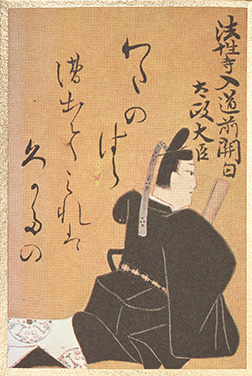 法性寺入道前関白
太政大臣
わたのはら
漕出てみれは
久かたの